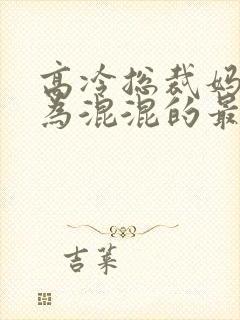 高冷总裁妈
为混混的最
吉莱